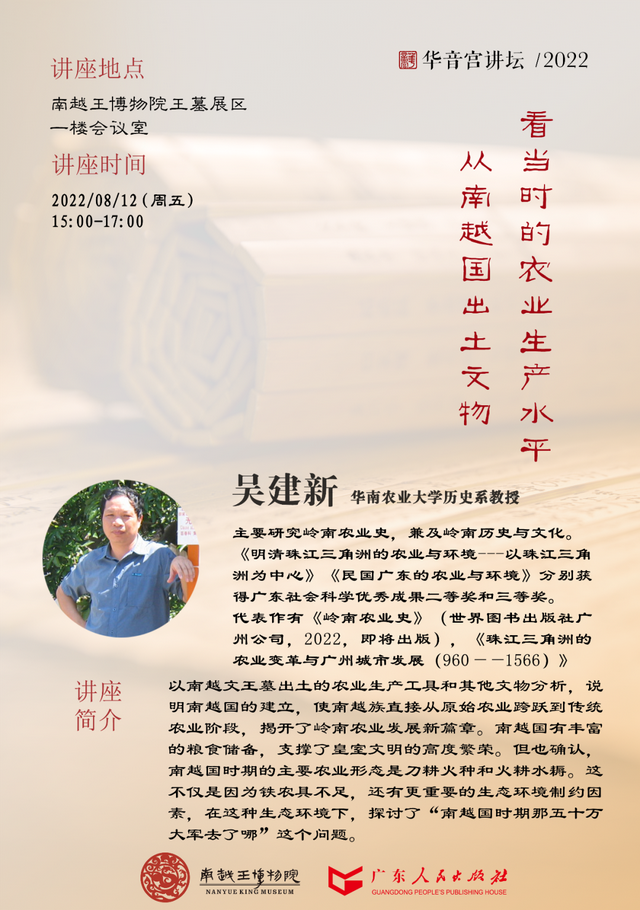 讲座地点
南越王博物院王墓展区
一楼会议室
讲座时间
2022/08/12(周五)
15:00-17:00
华音宫讲坛 /2022
从南越国出土文物
看当时的农业生产水平
吴建新 华南农业大学历史系教授
主要研究岭南农业史，兼及岭南历史与文化。
《明清珠江三角洲的农业与环境---以珠江三角
洲为中心》《民国广东的农业与环境》分别获
得广东社会科学优秀成果二等奖和三等奖。
代表作有《岭南农业史》（世界图书出版社广
州公司，2022，即将出版），《珠江三角洲的
农业变革与广州城市发展（960－－1566）》
讲座
简介
以南越文王墓出土的农业生产工具和其他文物分析，说
明南越国的建立，使南越族直接从原始农业跨跃到传统
农业阶段，揭开了岭南农业发展新篇章。南越国有丰富
的粮食储备，支撑了皇室文明的高度繁荣。但也确认，
南越国时期的主要农业形态是刀耕火种和火耕水耨。这
不仅是因为铁农具不足，还有更重要的生态环境制约因
素，在这种生态环境下，探讨了“南越国时期那五十万
大军去了哪”这个问题。
南越王博物院
NANYUE KING MUSEUM
广东人民出版社
GUANGDONG PEOPLE'S PUBLISHING HOUSE